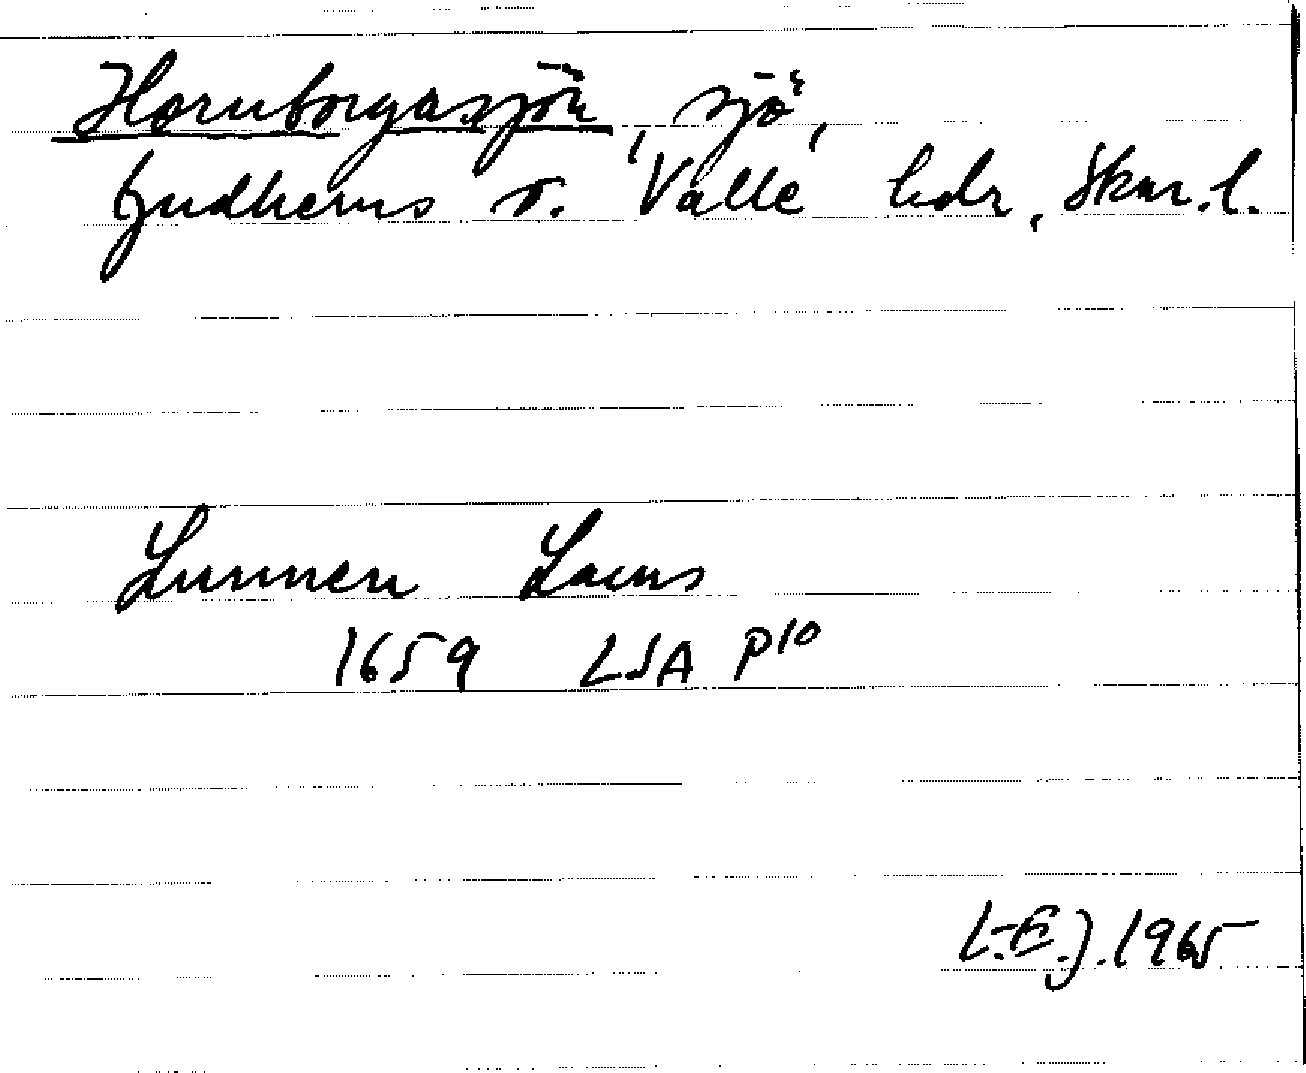 Hornborgasjön, sjö,
Gudhems o. Valle hdr, Skar.l.
Lunnen Lacus
1659 LSA P10
L.-E.J. 1965